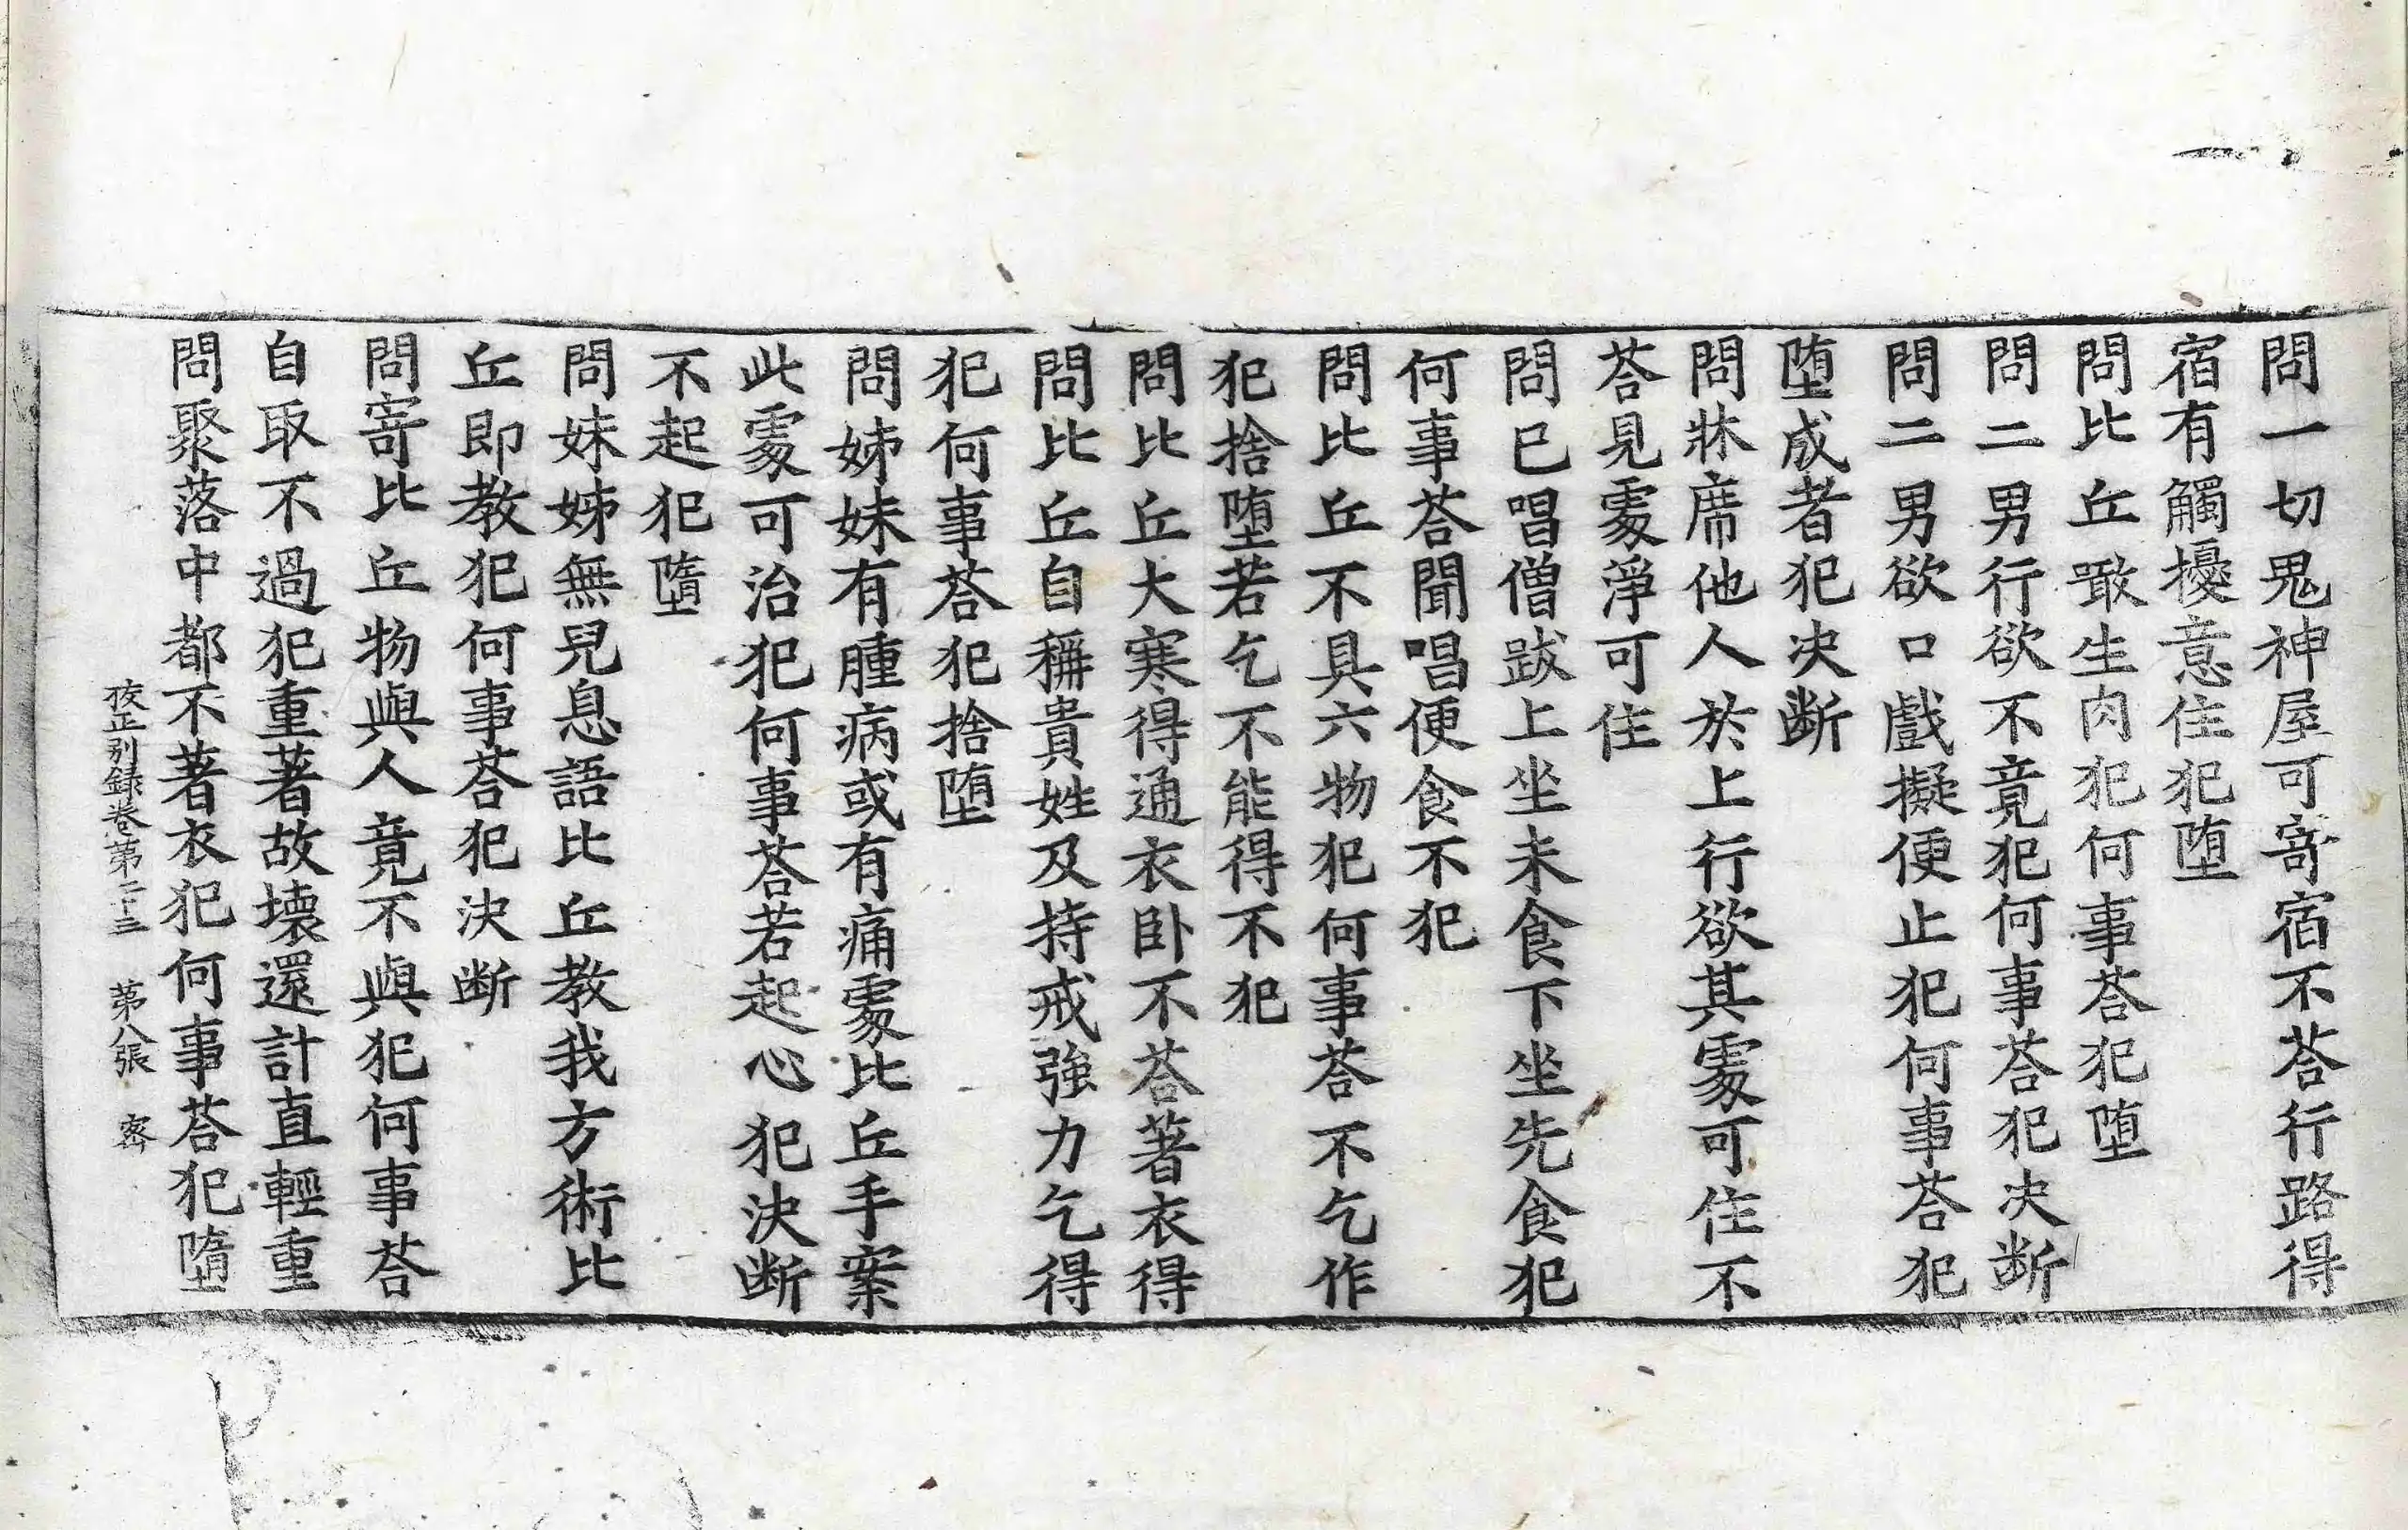 問一切鬼神屋可寄宿不荅行路得
宿有觸擾意住犯堕
問比丘噉生肉犯何事荅犯堕
問二男行欲不竟犯何事荅犯决断
問二男欲口戲擬便止犯何事荅犯
堕成者犯决断
問牀席他人於上行欲其䖏可住不
荅見䖏淨可住
問已唱僧跋上坐未食下坐先食犯
何事荅聞唱便食不犯
問比丘不具六物犯何事荅不乞作
犯捨堕若乞不能得不犯
問比丘大寒得通衣卧不荅著衣得
問比丘自稱貴姓及持戒強力乞得
犯何事荅犯捨堕
問姊妹有腫病或有痛䖏比丘手案
此䖏可治犯何事荅若起心犯決断
不起犯墮
問妹姊無兒息語比丘教我方術比
丘即教犯何事荅犯決断
問寄比丘物與人竟不與犯何事荅
自取不過犯重著故壊還計直輕重
問聚落中都不著衣犯何事荅犯墮
挍正别録卷第二十三 第八張 宻